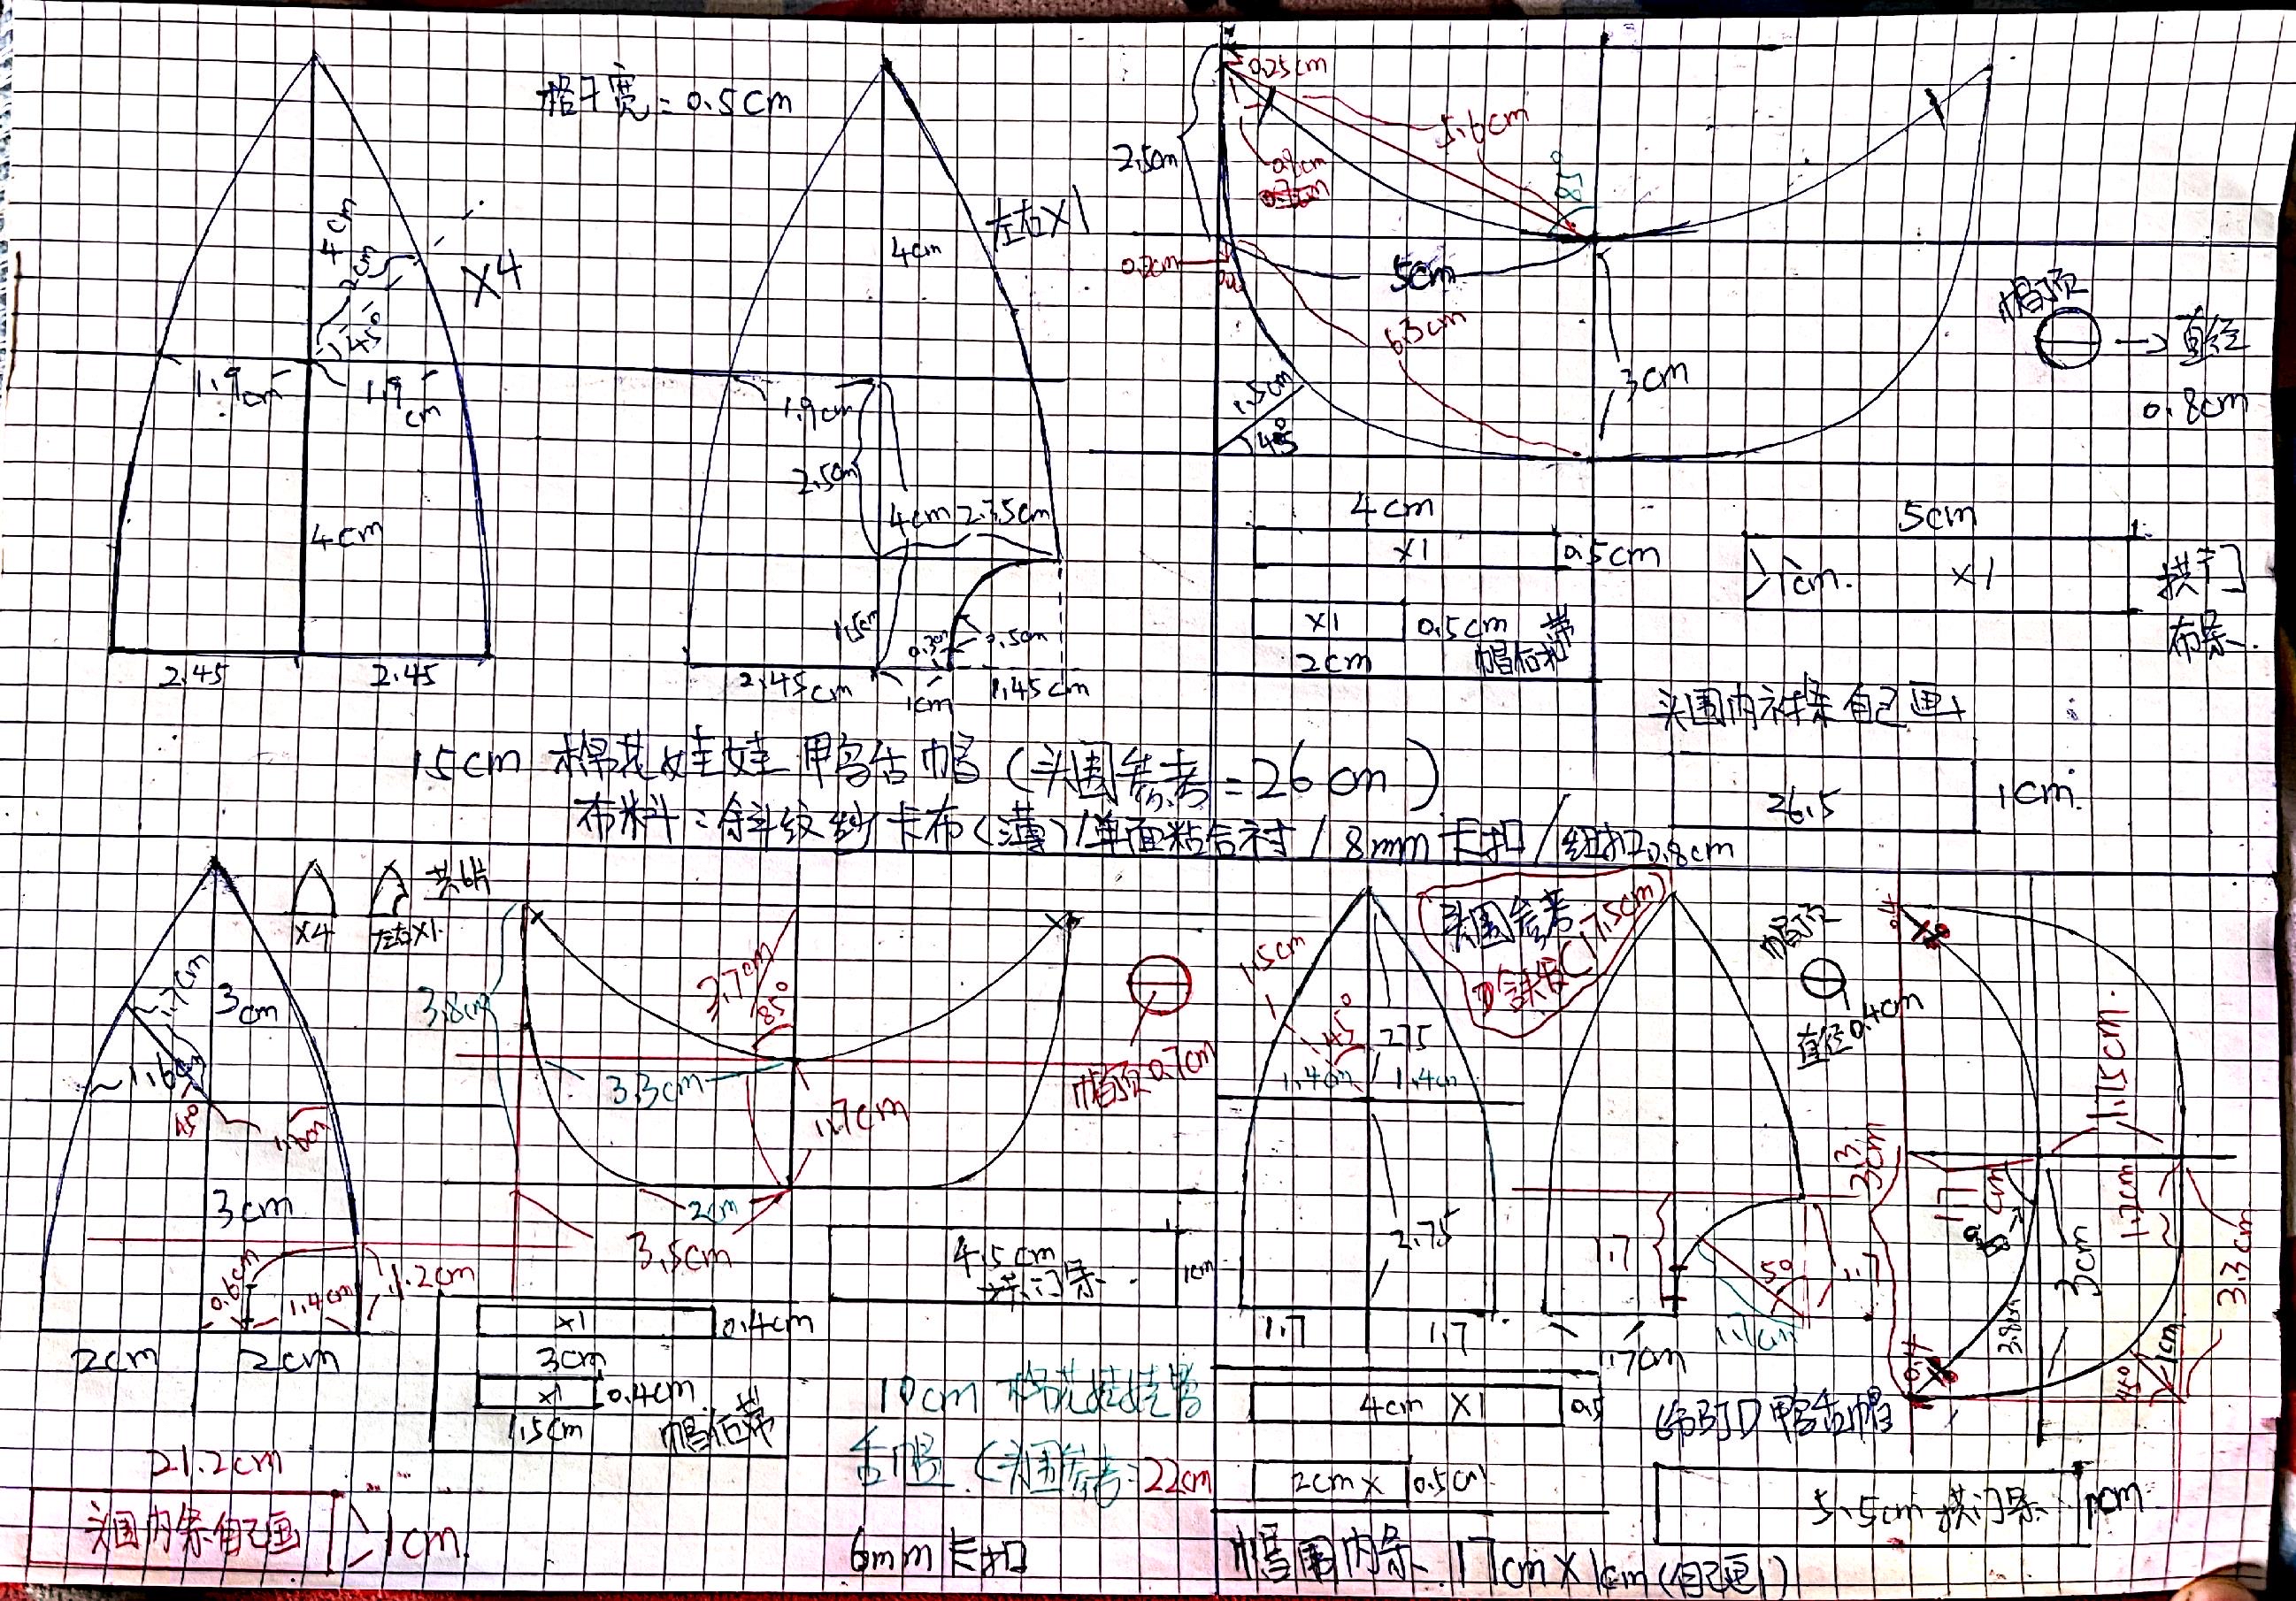 格子宽=0.5cm
4cm
2.5
45°
X4
1.9cm
1.9cm
4cm
2.45
2.45
4cm
左右X1
1.9cm
2.5cm
4cm
2.35cm
1.5cm
2.45cm
1cm
1.45cm
0.25cm
2.5cm
5.6cm
85°
0.2cm
5cm
6.3cm
3cm
1.5cm
45°
帽顶
直径
0.8cm
4cm
X1
0.5cm
X1
0.5cm
2cm
帽后扣带
5cm
1cm.
X1
拱门
布条.
头围内衬条自己画
26.5
1cm.
15cm 棉花娃娃鸭舌帽(头围参考=26cm)
布料:斜纹纱卡布(薄)/单面粘合衬/8mm卡扣/纽扣0.8cm
X4
左右X1.
共6片
~1.7cm
3cm
~1.6cm
45°
1.6cm
3cm
0.6cm
1.4cm
1.2cm
2cm
2cm
3.8cm
3.7cm
85°
3.3cm
1.7cm
2cm
3.5cm
帽顶0.7cm
4.5cm
拱门条
1cm
X1
0.4cm
3cm
X1
0.4cm
1.5cm
帽后带
21.2cm
头围内条自己画
1cm.
10cm 棉花娃娃鸭
舌帽(头围参考:22cm
6mm卡扣
头围参考
(17.5cm)
1.5cm
45°
2.75
1.4cm
1.4cm
2.75
1.7
1.7
帽顶
直径0.4cm
1.7
50
1.7
1.7cm
1.7cm
3.3cm
1.7cm
1.75cm.
1.2cm
3cm
3.8cm
3.3cm
45°
1cm
4cm X1
0.5
2cm X
0.5cm
鸭舌帽
5.5cm 拱门条
1cm
帽围内条 17cm X 1cm(自己画)